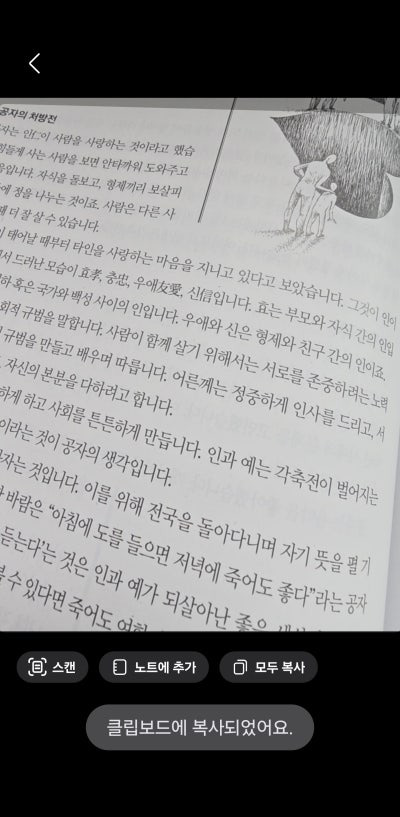 공자의 처방전
자는 인仁이 사람을 사랑하는 것이라고 했습
힘들게 사는 사람을 보면 안타까워 도와주고
음입니다. 자식을 돌보고, 형제끼리 보살피
에 정을 나누는 것이죠. 사람은 다른 사
때 더 잘 살 수 있습니다.
이 태어날 때부터 타인을 사랑하는 마음을 지니고 있다고 보았습니다. 그것이 인이
서 드러난 모습이 효孝, 충忠, 우애友愛, 신信입니다. 효는 부모와 자식 간의 인입
하 혹은 국가와 백성 사이의 인입니다. 우애와 신은 형제와 친구 간의 인이죠.
회적 규범을 말합니다. 사람이 함께 살기 위해서는 서로를 존중하려는 노력
규범을 만들고 배우며 따릅니다. 어른께는 정중하게 인사를 드리고, 서
자신의 본분을 다하려고 합니다.
하게 하고 사회를 튼튼하게 만듭니다. 인과 예는 각축전이 벌어지는
이라는 것이 공자의 생각입니다.
자는 것입니다. 이를 위해 전국을 돌아다니며 자기 뜻을 펼 기
바람은 “아침에 도를 들으면 저녁에 죽어도 좋다”라는 공자
듣는다’는 것은 인과 예가 되살아난 좋은
볼 수 있다면 죽어도
스캔
노트에 추가
모두 복사
클립보드에 복사되었어요.